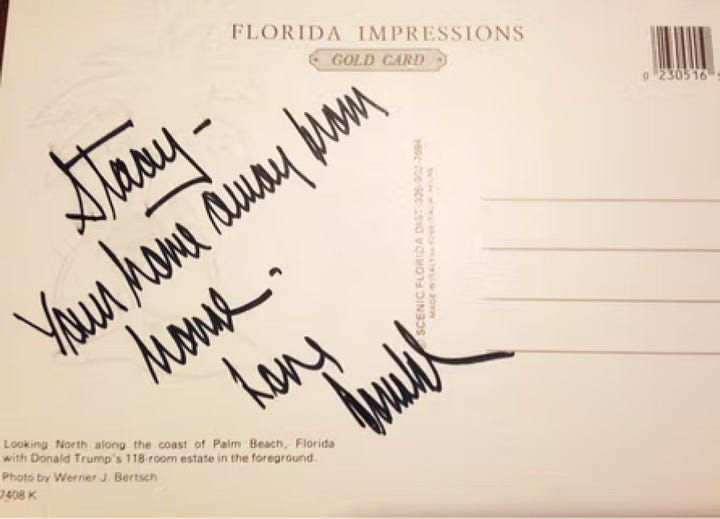 FLORIDA IMPRESSIONS
GOLD CARD
0 230516
Stacy-
Your home away from
home.
Love,
Donald
SCENIC FLORIDA DIST.
MADE IN ITALY
Looking North along the coast of Palm Beach, Florida
with Donald Trump's 118-room estate in the foreground.
Photo by Werner J. Bertsch
7408 K